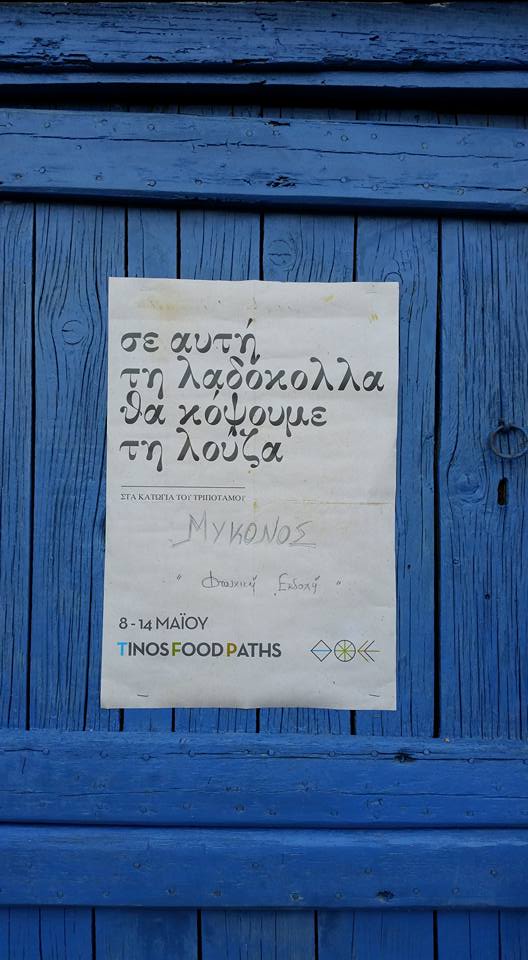 σε αυτή
τη λαδόκολλα
θα κόψουμε
τη λούζα
ΣΤΑ ΚΑΤΩΓΙΑ ΤΟΥ ΤΡΙΠΟΤΑΜΟΥ
ΜΥΚΟΝΟΣ
" Φτωχική Εκδοχή "
8 - 14 ΜΑΪΟΥ
TINOS FOOD PATHS